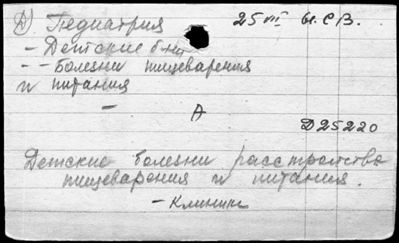 А) Педиатрия 25 III
– Детские б-ни
– – Болезни пищеварения
и питания
–
А
Д25220
Детские болезни расстройства
пищеварения и питания.
– Клиник